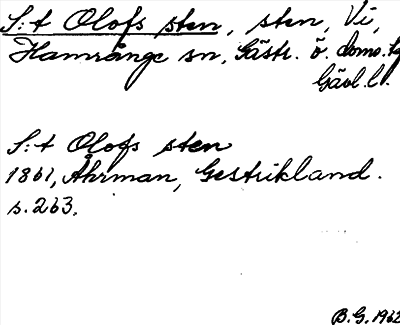 S:t Olofs sten, sten, Vi,
Hamrånge sn, Gästr. ö. doms.
Gävl. l.
S:t Olofs sten
1861, Åhrman, Gestrikland.
s. 263.
B.G. 1962